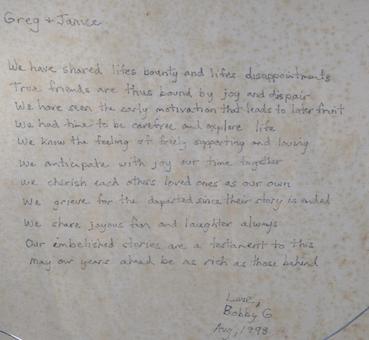 Greg + Janice
We have shared lifes bounty and lifes disappointments
True friends are thus bound by joy and dispair
We have seen the early motivation that leads to later fruit
We had time to be carefree and explore life
We know the feeling of freely supporting and loving
We anticipate with joy our time together
We cherish each others loved ones as our own
We grieve for the departed since their story is ended
We share joyous fun and laughter always
Our embelished stories are a testiament to this
May our years ahead be as rich as those behind
Love,
Bobby G
Aug, 1998